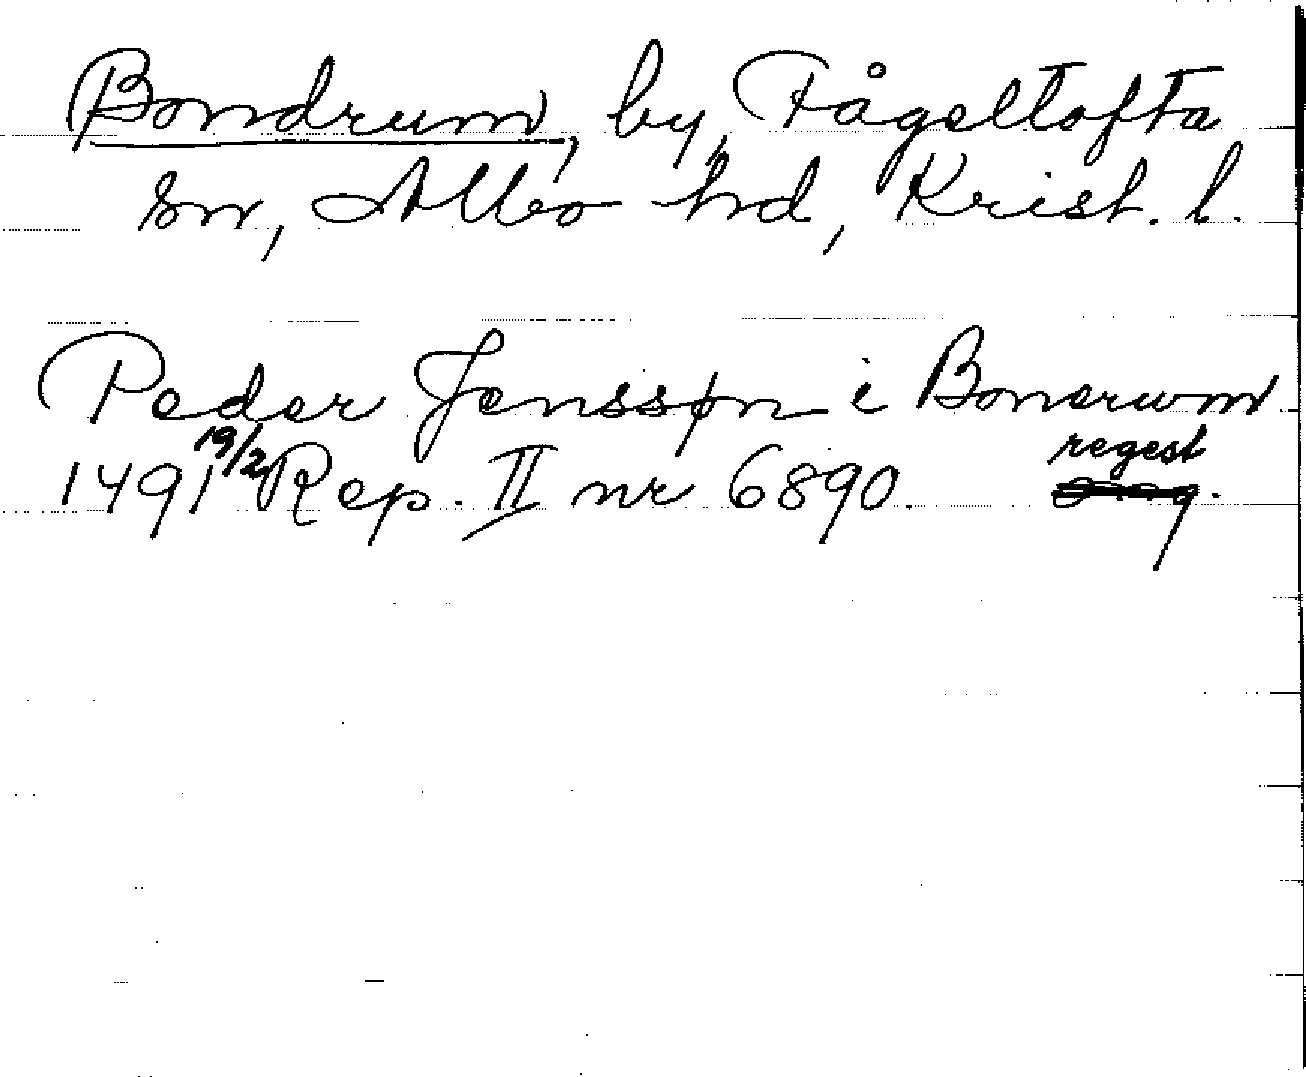 Bondrum, by, Fågeltofta
sn, Albo hd, Krist. l.
Peder Jenssøn i Bonerwm
1491 19/2 Rep. II nr 6890. regest